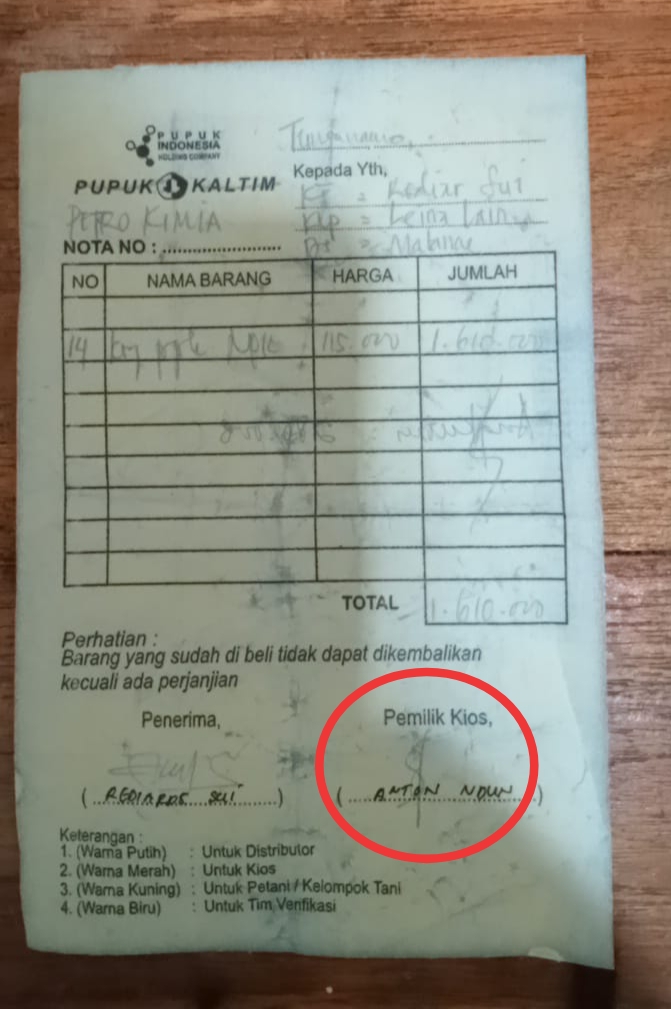 PUPUK
INDONESIA
HOLDING COMPANY
PUPUK KALTIM
Kepada Yth,
PETRO KIMIA
NOTA NO : ........................
NO NAMA BARANG HARGA JUMLAH
14 115.000 1.610.000
TOTAL 1.610.000
Perhatian :
Barang yang sudah di beli tidak dapat dikembalikan
kecuali ada perjanjian
Penerima, Pemilik Kios,
( REDIARDS SUI ) ( ANTON NDUN )
Keterangan :
1. (Warna Putih) : Untuk Distributor
2. (Warna Merah) : Untuk Kios
3. (Warna Kuning) : Untuk Petani / Kelompok Tani
4. (Warna Biru) : Untuk Tim Verifikasi